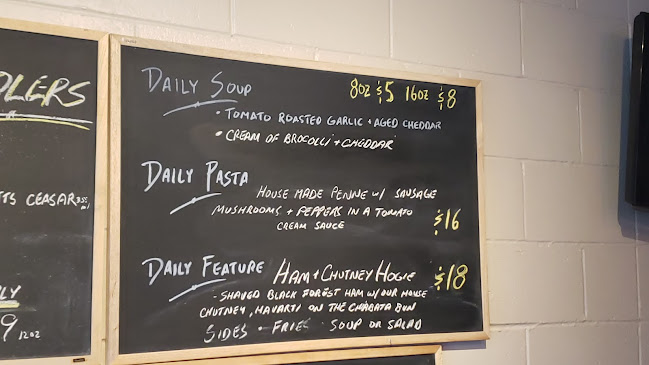 DLERS
TS CEASAR
LY
9 12OZ
DAILY SOUP 8OZ $5 16OZ $8
• TOMATO ROASTED GARLIC + AGED CHEDDAR
• CREAM OF BROCOLLI + CHEDDAR
DAILY PASTA
HOUSE MADE PENNE W/ SAUSAGE
MUSHROOMS + PEPPERS IN A TOMATO
CREAM SAUCE $16
DAILY FEATURE HAM + CHUTNEY HOGIE $18
- SHAVED BLACK FOREST HAM W/ OUR HOUSE
CHUTNEY, HAVARTI ON THE CIABATA BUN
SIDES - FRIES - SOUP OR SALAD